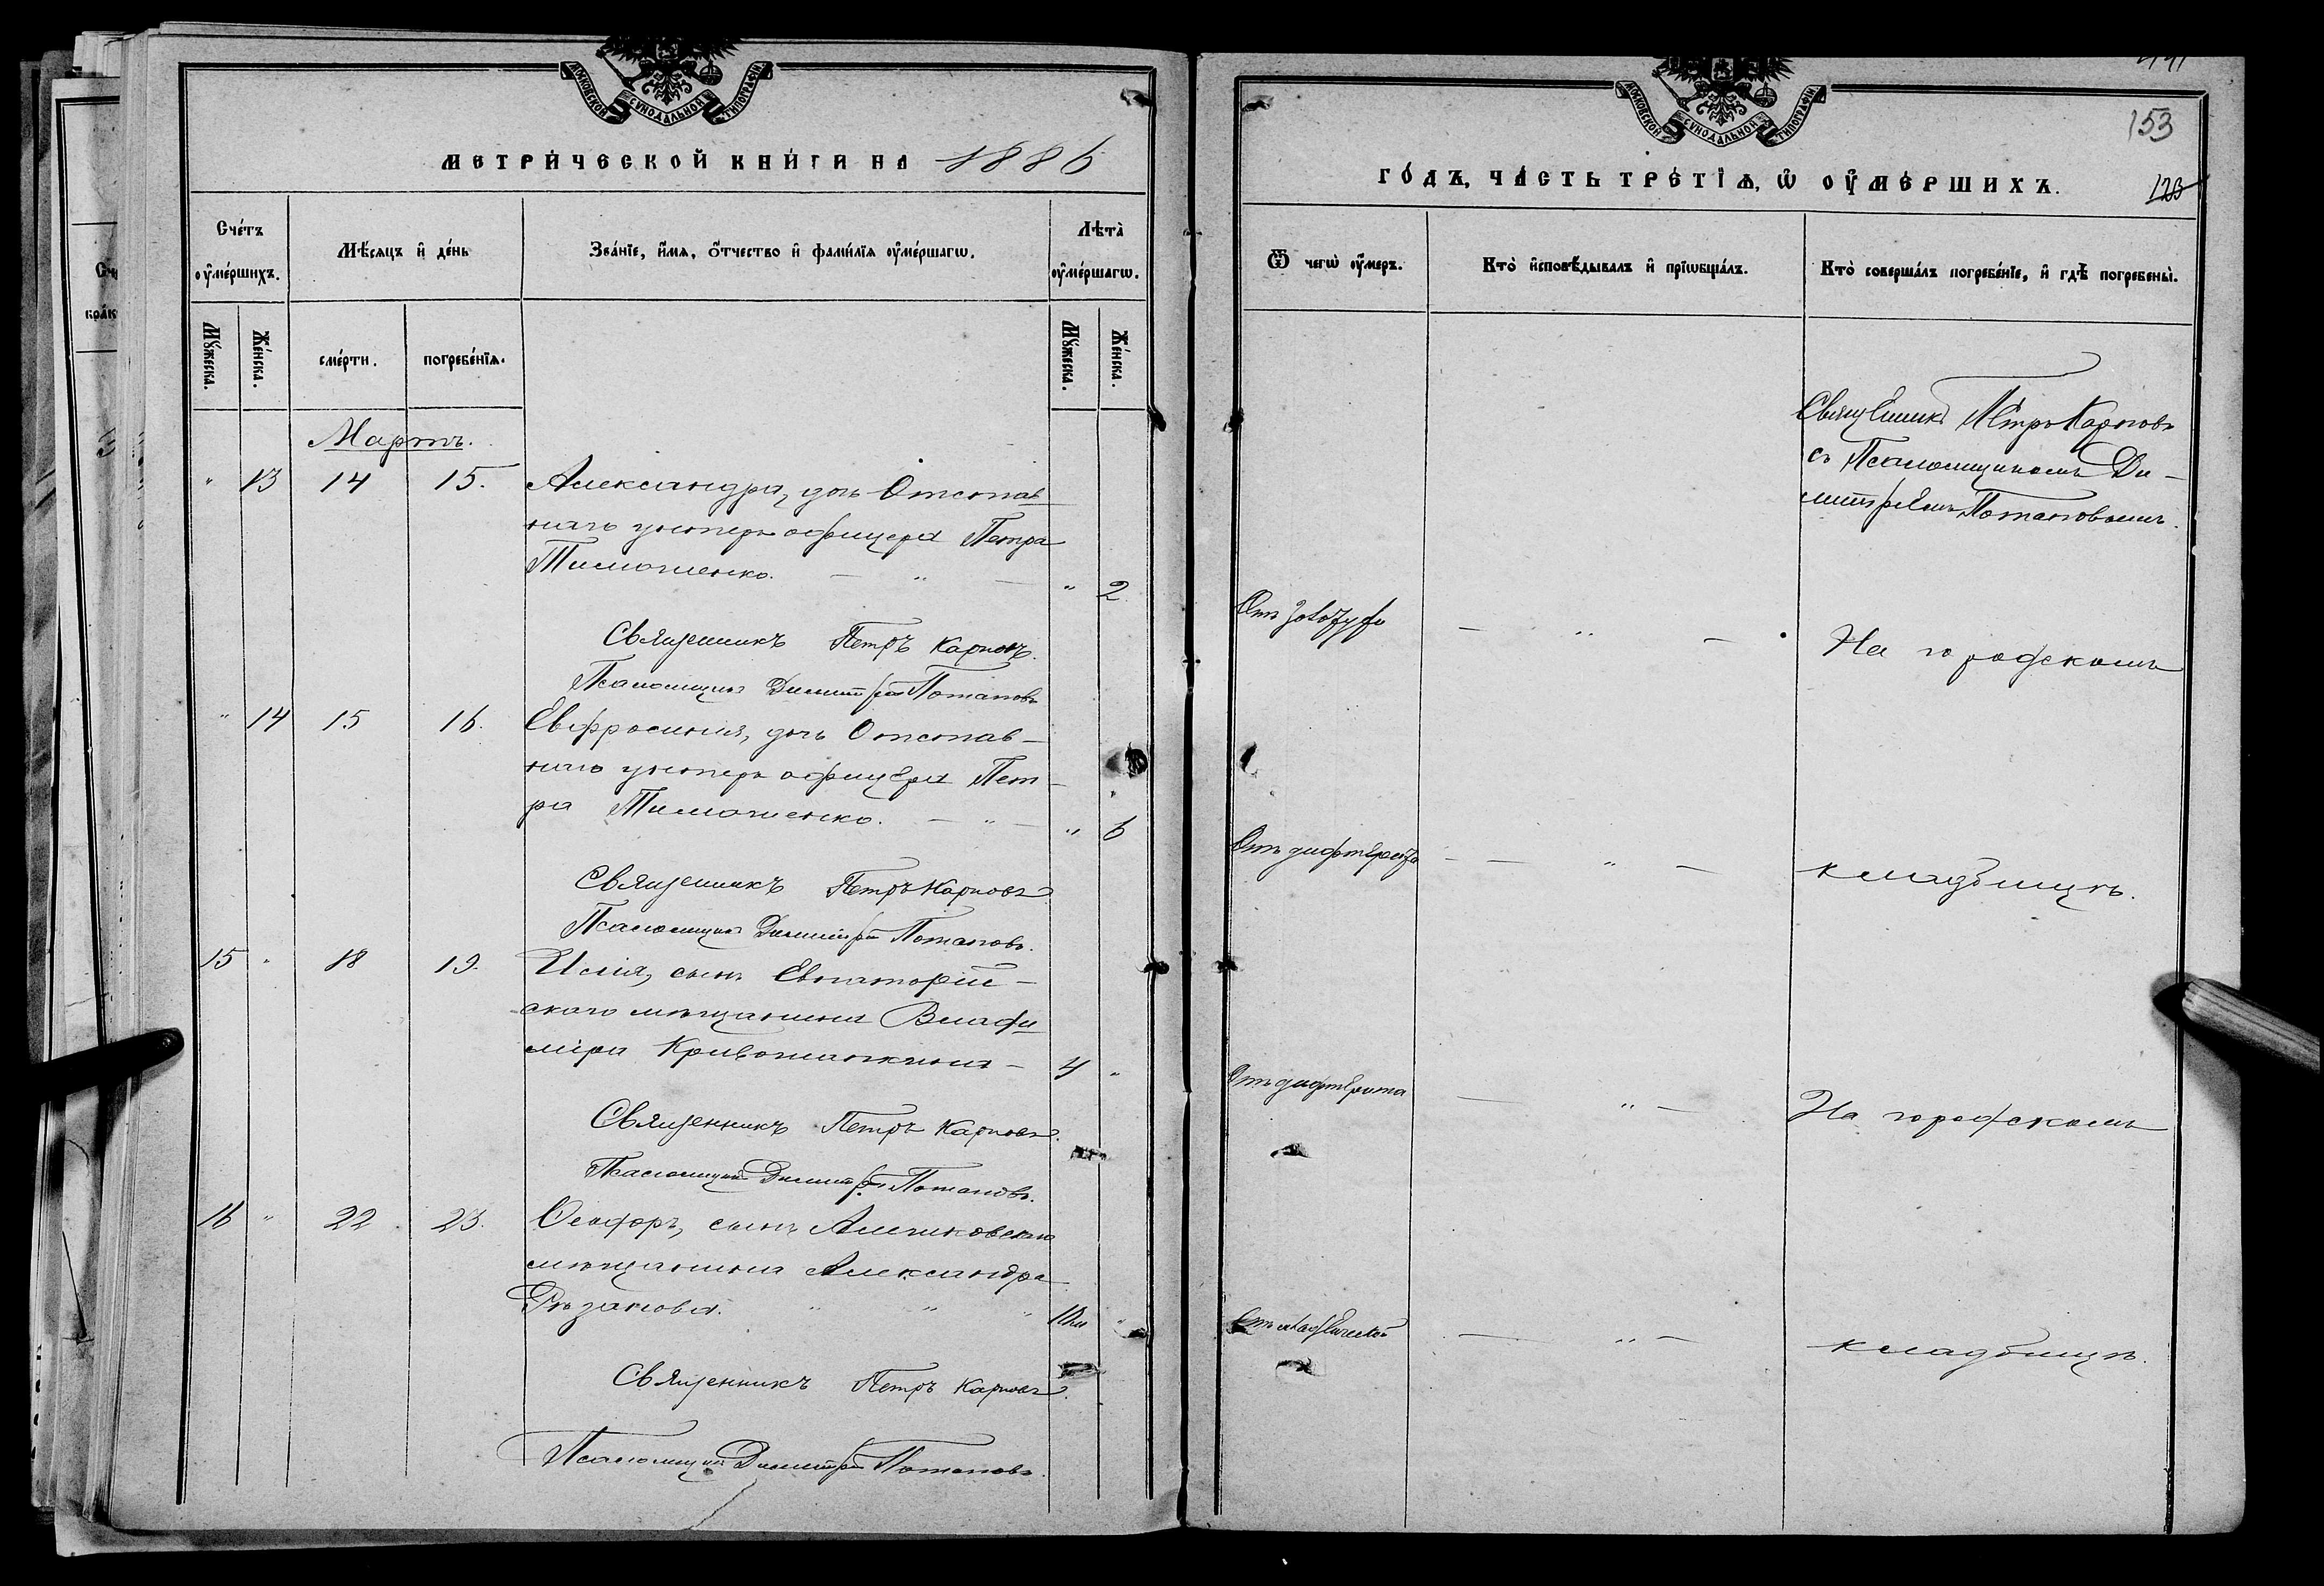 МОСКОВСКОЙ СѴНОДАЛЬНОЙ ТИПОГРАФІИ
МЕТРИ́ЧЕСКОЙ КНИ́ГИ НА 1886
Сче́тъ ᲂу҆ме́ршихъ.
Мѣ́сяцъ и҆ де́нь
Зва́нїе, и҆́мѧ, ѻ҆́тчество и҆ фами́лїѧ ᲂу҆ме́ршагѡ.
Лѣта̀ ᲂу҆ме́ршагѡ.
Мꙋ́жеска.
Же́нска.
сме́рти.
погребе́нїѧ.
Мꙋ́жеска.
Же́нска.
Мартъ.
" 13 14 15. Александра, дочь Отстав
наго унтеръ офицера Петра
Тимошенко. — " — " 2
Священникъ Петръ Карповъ.
Псаломщикъ Димитрій Потаповъ
" 14 15 16. Евфросинія, дочь Отстав-
наго унтеръ офицера Пет-
ра Тимошенко. — " — " 6
Священникъ Петръ Карповъ.
Псаломщикъ Димитрій Потаповъ.
15 " 18 19. Илія, сынъ Евпаторій-
скаго мѣщанина Влади
міра Кривошапкина — 4 "
Священникъ Петръ Карповъ.
Псаломщикъ Димитрій Потаповъ.
16 " 22 23. Ѳеодоръ, сынъ Алешковскаго
мѣщанина Александра
Рѣзанова. " " "
Священникъ Петръ Карповъ.
Псаломщикъ Димитрій Потаповъ.
МОСКОВСКОЙ СѴНОДАЛЬНОЙ ТИПОГРАФІИ
153
ГО́ДЪ, ЧА́СТЬ ТРЕ́ТЇѦ, Ѡ҆ ОУ҆МЕ́РШИХЪ.
123
Ѿ чегѡ̀ ᲂу҆́меръ.
Кто̀ и҆сповѣ́дывалъ и҆ прїѡбща́лъ.
Кто̀ соверша́лъ погребе́нїе, и҆ гдѣ̀ погребены̀.
Священникъ Петръ Карповъ
съ Псаломщикомъ Ди-
митріемъ Потаповымъ.
Отъ — " — На городскомъ
Отъ дифтерита — — " — кладбищѣ.
Отъ дифтерита — " — На городскомъ
Отъ — " — кладбищѣ.